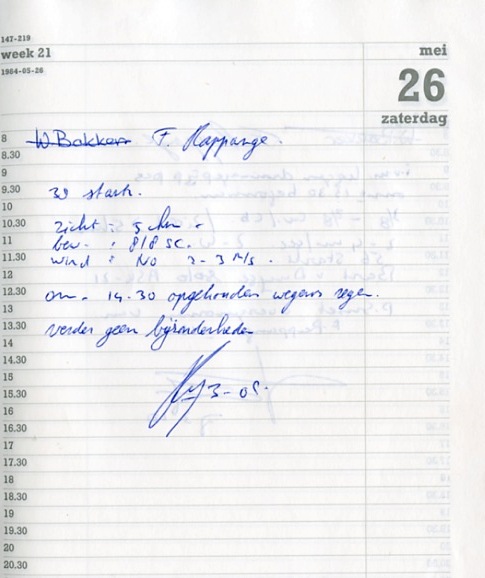 147-219
week 21
mei
1984-05-26
26
zaterdag
8
W. Bakker F. Rappange.
8.30
9
9.30
39 starts.
10
10.30
zicht : 5 km.
11
bew. : 8/8 SC.
11.30
wind : NO 2-3 m/s.
12
12.30
om. 14.30 opgehouden wegens regen.
13
13.30
verder geen bijzonderheden
14
14.30
15
15.30
16
16.30
17
17.30
18
18.30
19
19.30
20
20.30